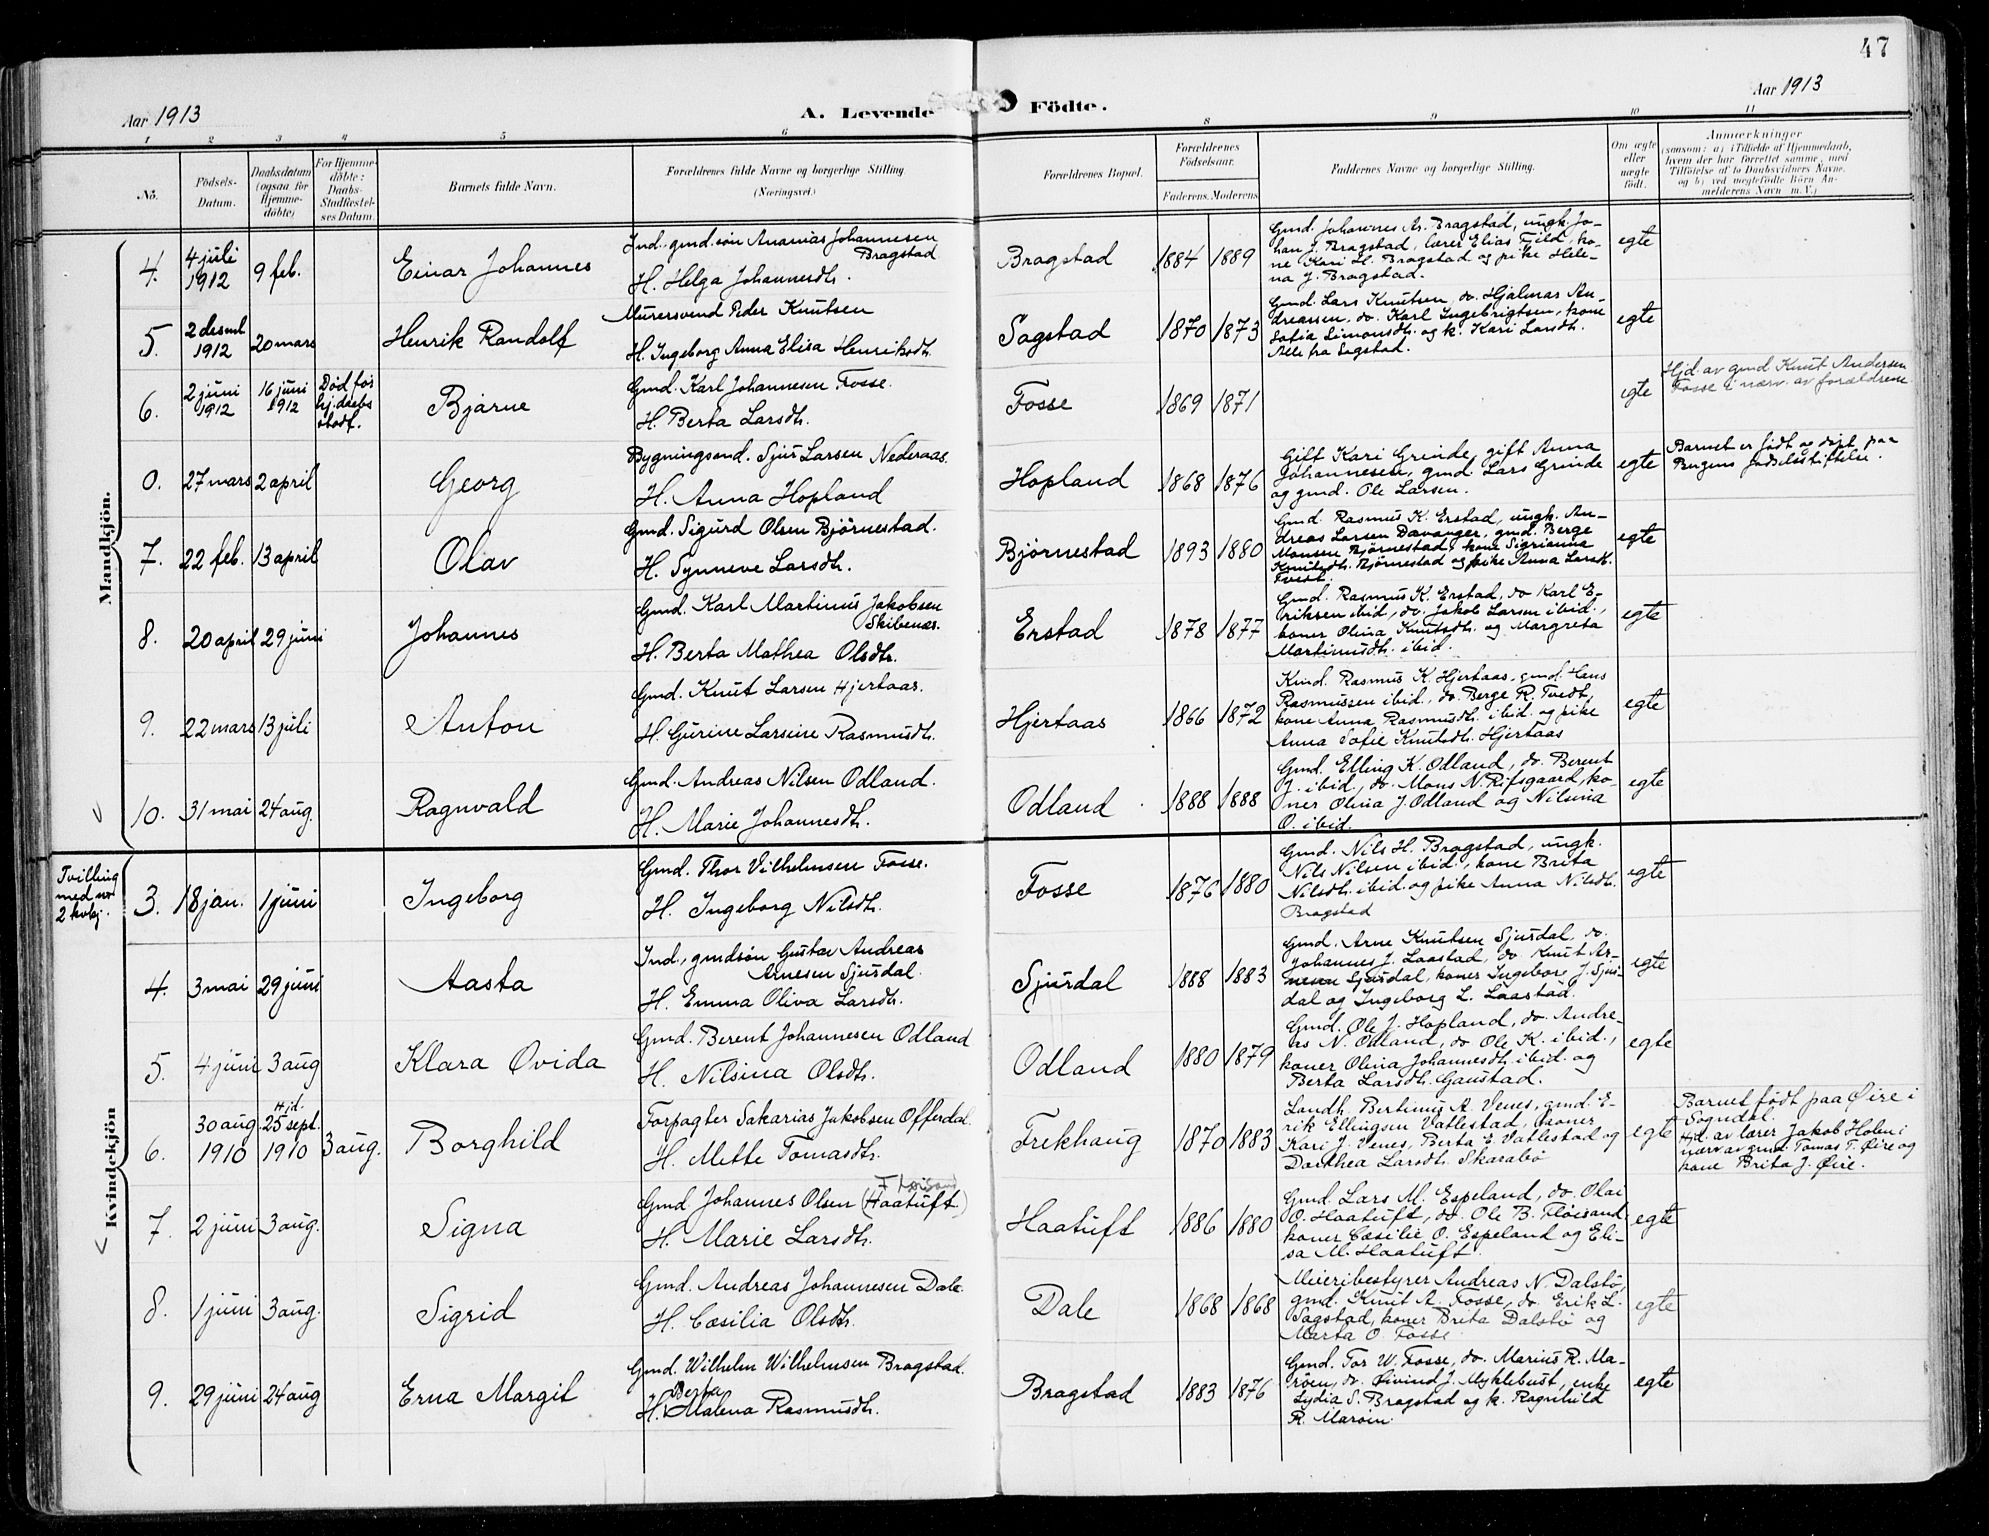 47
Aar 1913
A. Levende Födte.
Aar 1913
1 2 3 4 5 6 8 9 10 11
No.
Födsels-Datum.
Daabsdatum (ogsaa for Hjemmedöbte)
For Hjemmedöbte: Daabs-Stadfæstelses Datum.
Barnets fulde Navn.
Forældrenes fulde Navne og borgerlige Stilling
(Næringsvei.)
Forældrenes Bopæl.
Forældrenes Födselsaar.
Faderens. Moderens.
Faddernes Navne og borgerlige Stilling.
Om ægte eller uægte födt.
Anmærkninger
(saasom: a) i Tilfælde af Hjemmedaab,
hvem der har forrettet samme, med
Tilföielse af to Daabsvidners Navne,
og b) ved uægtefödte Börn An-
melderens Navn m. V.)
Mandkjön.
4. 4 juli 1912 9 feb. Einar Johannes
Ind., gmd.søn Ananias Johannesen Bragstad
H. Helga Johannesdtr.
Bragstad 1884 1889
Gmd. Johannes A. Bragstad, ungk. Jo-
han J. Bragstad, lærer Elias Fild, ko-
ne Kari H. Bragstad og pike Hele-
na J. Bragstad.
egte
5. 2 desmb 1912 20 mars Henrik Randolf
Murersvend Peder Knutsen
H. Ingeborg Anna Elisa Henriksdtr.
Sagstad 1870 1873
Gmd. Lars Knutsen, do. Hjalmar An-
dreassen, do. Karl Ingebrigtsen, kone
Sofia Simonsdtr. og k. Kari Larsdtr.
Alle fra Sagstad.
egte
6. 2 juni 1912 16 juni 1912 Død før hj.daabs stadf. Bjarne
Gmd. Karl Johannesen Fosse.
H. Berta Larsdtr.
Fosse 1869 1871
egte
Hjd. av gmd Knut Andersen
Fosse i nærv. av forældrene
0. 27 mars 2 april Georg
Bygningsmd. Sjur Larsen Nederaas.
H. Anna Hopland
Hopland 1868 1876
Gift Kari Grinde, gift Anna
Johannesen, gmd. Lars Grinde
og gmd. Ole Larsen.
egte
Barnet er født og døpt paa
Bergens fødselsstiftelse.
7. 22 feb. 13 april Olav
Gmd. Sigurd Olsen Bjørnestad.
H. Synneve Larsdtr.
Bjørnestad 1893 1880
Gmd. Rasmus K. Erstad, ungk. An-
dreas Larsen Davanger, gmd. Berge
Monsen Bjørnestad, kone Sigrianna
Knutsdtr. Bjørnestad og pike Anna Larsdtr.
Tvedt.
egte
8. 20 april 29 juni Johannes
Gmd. Karl Martinus Jakobsen Skibenes.
H. Berta Mathea Olsdtr.
Erstad 1878 1877
Gmd. Rasmus K. Erstad, do Karl E-
riksen ibid, do. Jakob Larsen ibid.,
koner Olina Knutsdtr. og Margreta
Martinusdtr. ibid.
egte
9. 22 mars 13 juli Anton
Gmd. Knut Larsen Hjertaas.
H. Gurine Larsine Rasmusdtr.
Hjertaas 1866 1872
Gmd. Rasmus K. Hjertaas, gmd. Hans
Rasmussen ibid., do. Berge R. Tvedt,
kone Anna Rasmusdtr. ibid. og pike
Anna Sofie Knutsdtr. Hjertaas
egte
10. 31 mai 24 aug. Ragnvald
Gmd. Andreas Nilsen Odland.
H. Marie Johannesdtr.
Odland 1888 1888
Gmd. Elling K. Odland, do. Berent
J. ibid., do. Mons N. Rifsgaard, ko-
ner Olina J. Odland og Nilsina
O. ibid.
egte
Kvindekjön
Tvilling
med no
2 kvkj.
3. 18 jan. 1 juni Ingeborg
Gmd. Thor Vilhelmsen Fosse.
H. Ingeborg Nilsdtr.
Fosse 1876 1880
Gmd. Nils H. Bragstad, ungk.
Nils Nilsen ibid., kone Brita
Nilsdtr. ibid. og pike Anna Nilsdtr.
Bragstad
egte
4. 3 mai 29 juni Aasta
Ind., gmdsøn Gustav Andreas
Arnesen Sjursdal.
H. Emma Oliva Larsdtr.
Sjursdal 1888 1883
Gmd. Arne Knutsen Sjursdal, do.
Johannes J. Laastad, do Knut Ar-
nesen Sjursdal, koner Ingeborg J. Sjurs-
dal og Ingeborg L. Laastad.
egte
5. 4 juni 3 aug Klara Ovida
Gmd. Berent Johannesen Odland
H. Nilsina Olsdtr.
Odland 1880 1879
Gmd. Ole J. Hopland, do. Andre-
as N. Odland, do Ole K. ibid.,
koner Olina Johannesdtr. ibid. og
Berta Larsdtr. Gaustad.
egte
6. 30 aug 1910 Hjd. 25 sept. 1910 3 aug. Borghild
Forpagter Sakarias Jakobsen Offerdal.
H. Mette Tomasdtr.
Frekhaug 1870 1883
Landh. Bertinus A. Venes, gmd. E-
rik Ellingsen Vatlestad, koner
Kari J. Venes, Berta E. Vatlestad og
Dorthea Larsdtr. Skarabø
egte
Barnet født paa Øire i
Sogndal.
Hjd. av lærer Jakob Holm i
nærv av gmd. Tomas T. Øire og
kone Brita J. Øire.
7. 2 juni 3 aug. Signa
Fløisand
Gmd Johannes Olsen (Haatuft.)
H. Marie Larsdtr.
Haatuft 1886 1880
Gmd. Lars M. Espeland, do. Olai
O. Haatuft, do. Ole B. Fløisand,
koner Cæsilie O. Espeland og Eli-
sa M. Haatuft.
egte
8. 1 juni 3 aug. Sigrid
Gmd. Andreas Johannesen Dale.
H. Cæsilia Olsdtr.
Dale 1868 1868
Meieribestyrer Andreas N. Dalstø,
gmd. Knut A. Fosse, do. Erik L.
Sagstad, koner Brita Dalstø og
Marta O. Fosse.
egte
9. 29 juni 24 aug Erna Margit
Gmd. Wilhelm Wilhelmsen Bragstad.
Berta
H. Malena Rasmusdtr.
Bragstad 1883 1876
Gmd. Tor W. Fosse, do. Marius R. Ma-
røen, do. Øivind J. Myklebust, enke
Lydia S. Bragstad og k. Ragnhild
R. Marøen.
egte